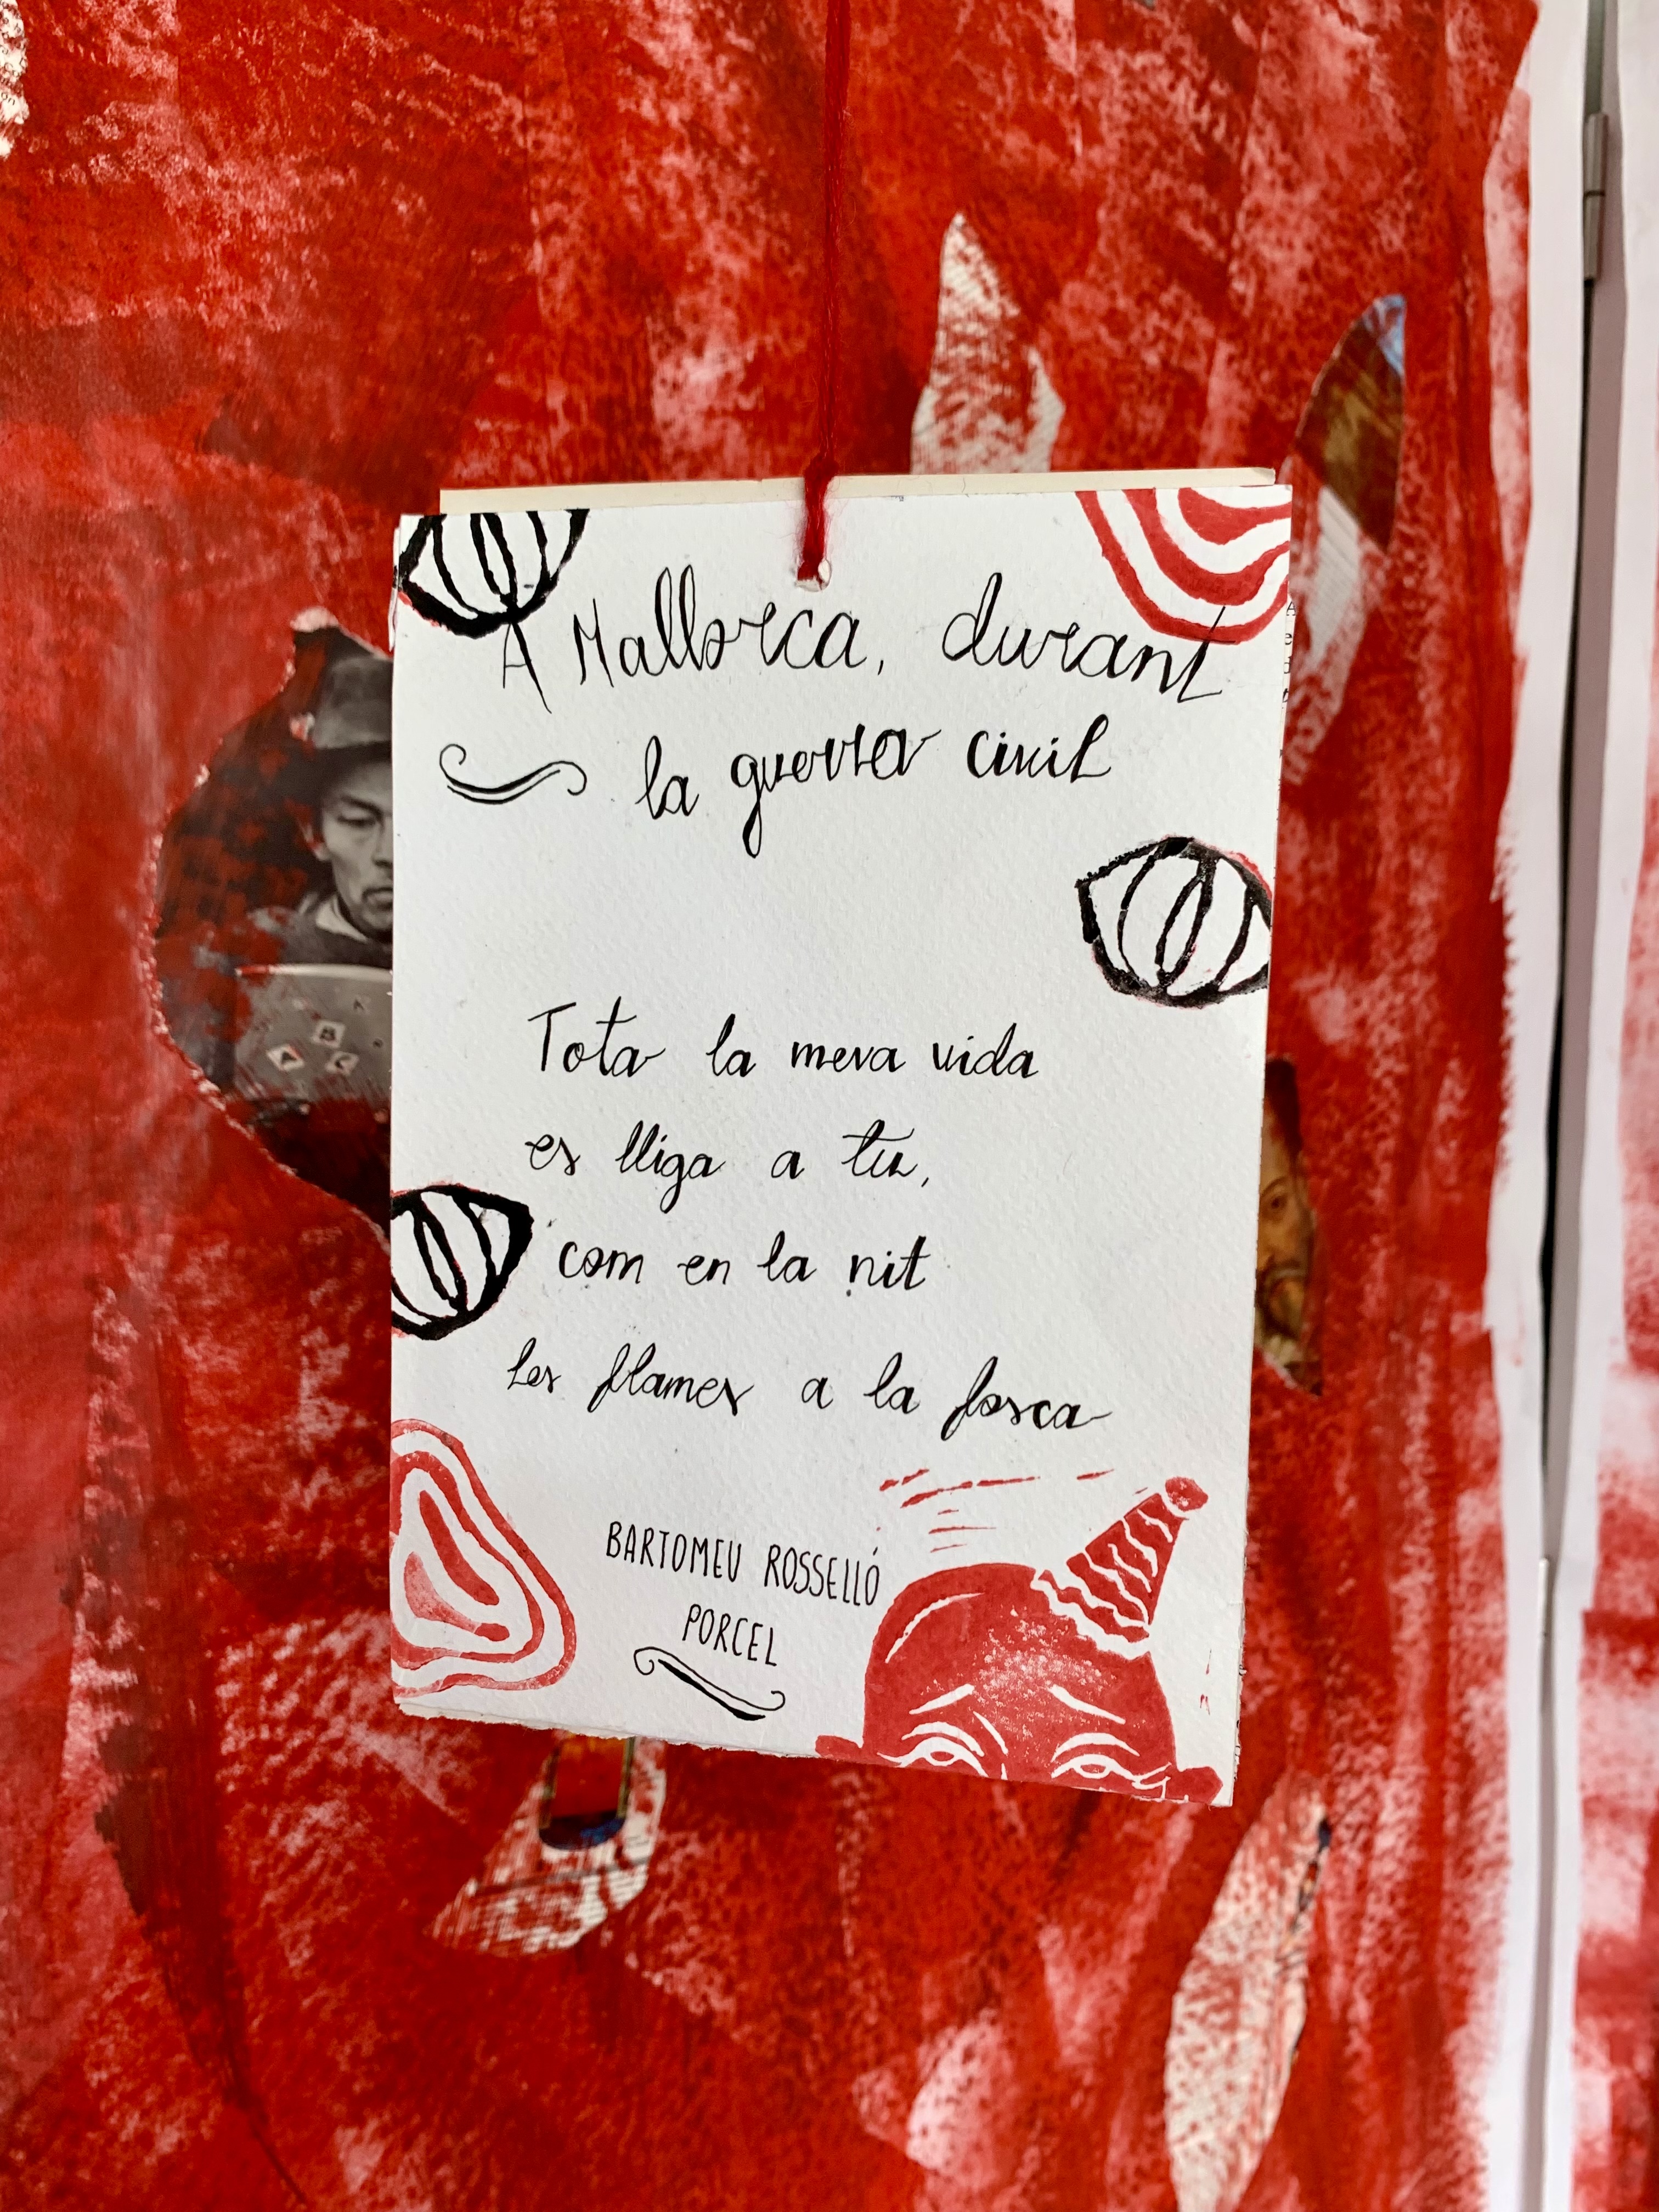 A Mallorca, durant
la guerra civil
Tota la meva vida
es lliga a tu,
com en la nit
les flames a la fosca
BARTOMEU ROSSELLÓ
PORCEL